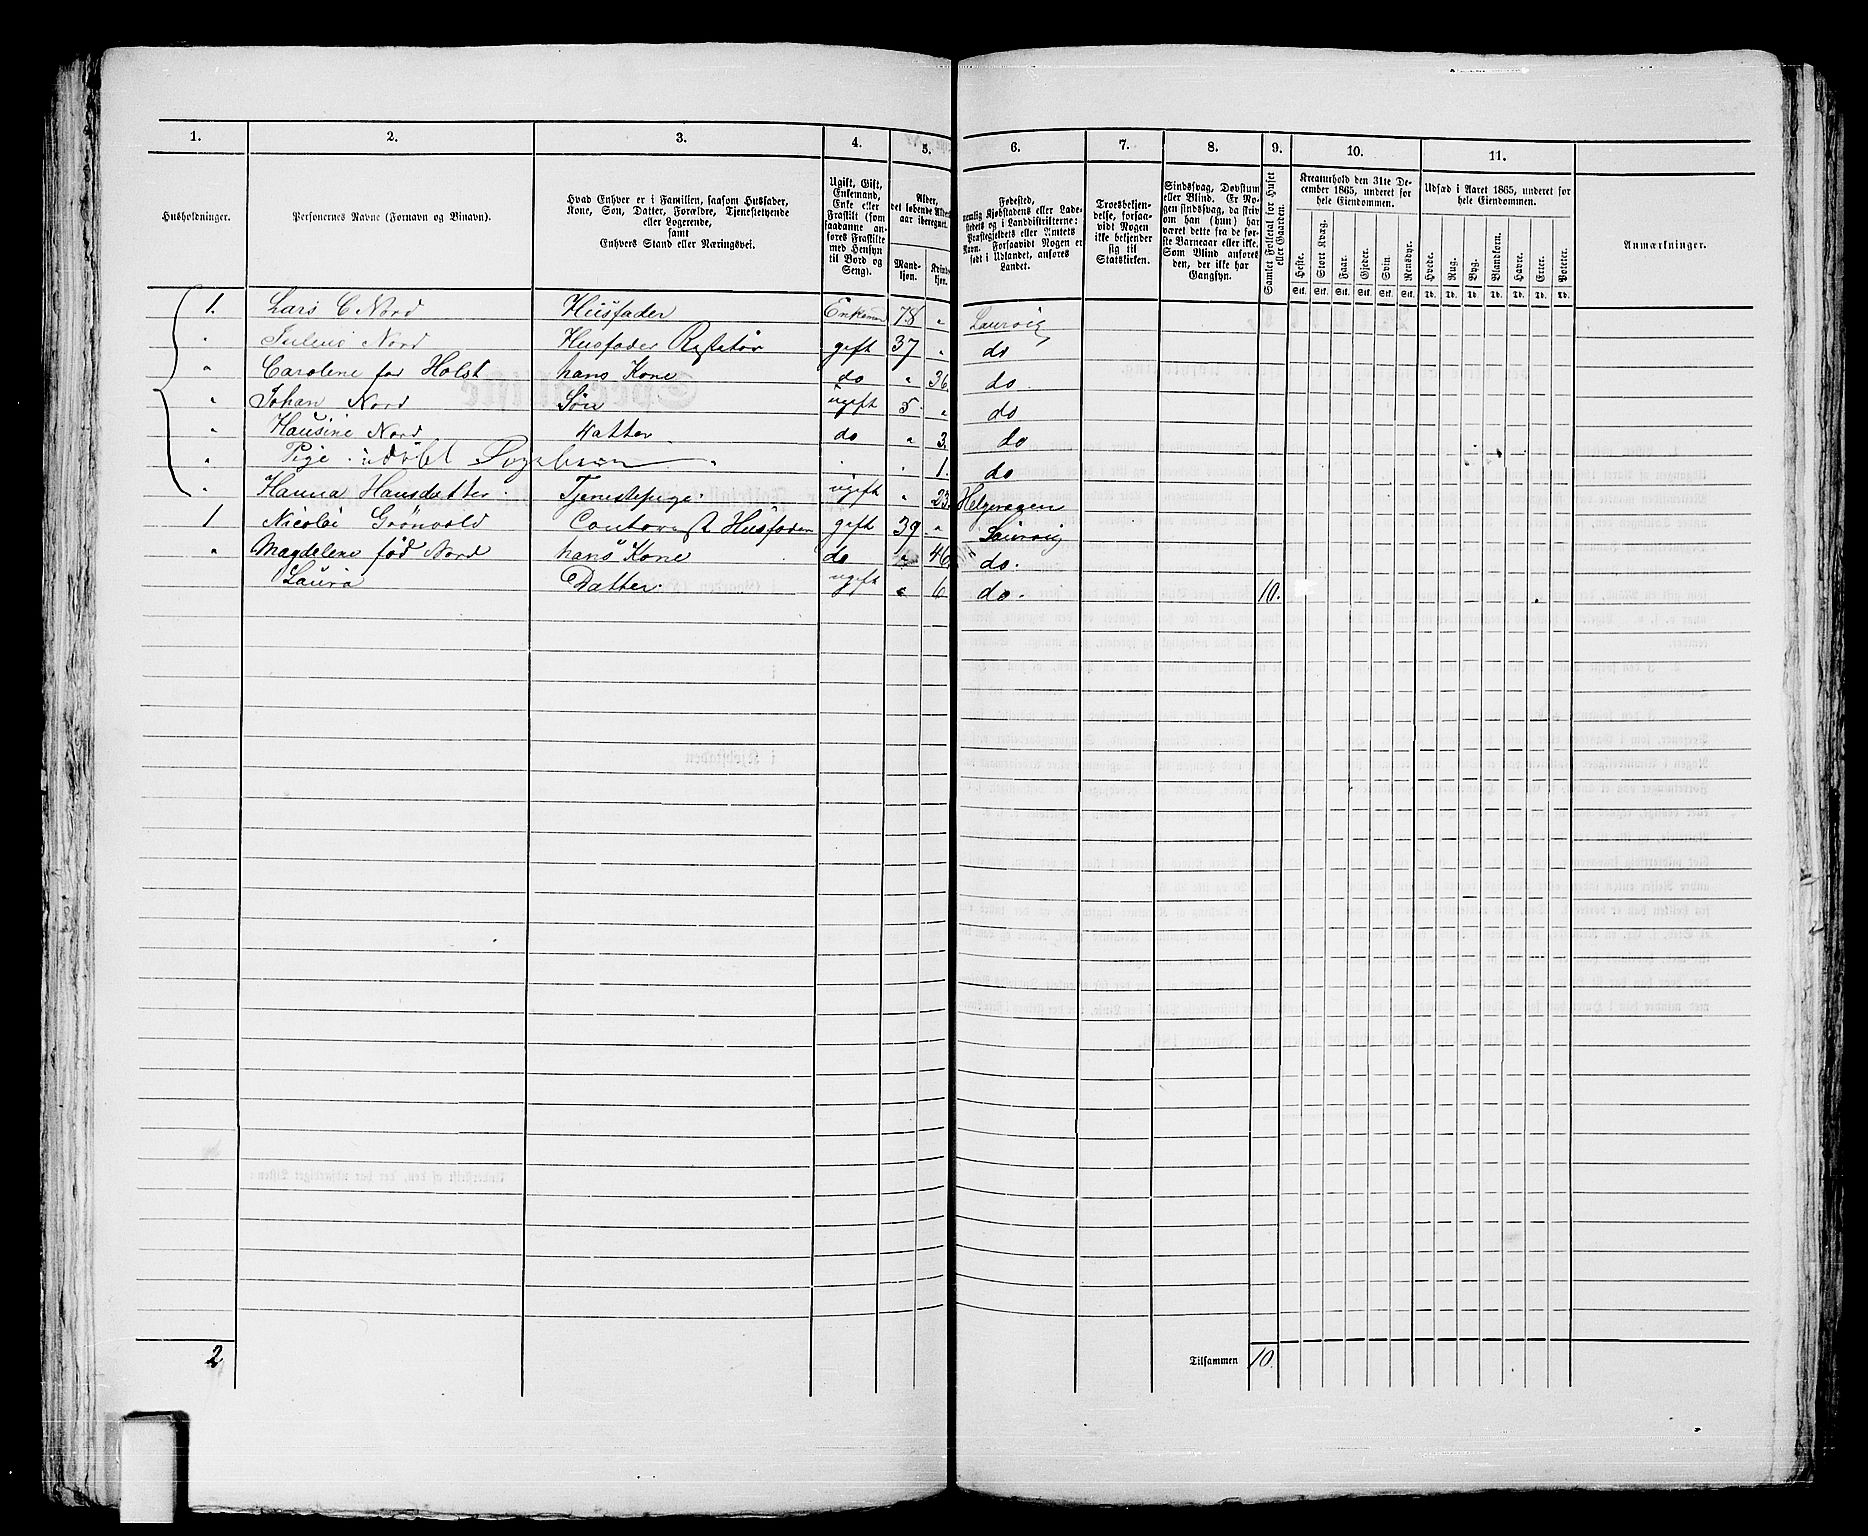 1. 2. 3. 4. 5. 6. 7. 8. 9. 10. 11.
Husholdninger.
Personernes Navne (Fornavn og Binavn).
Hvad Enhver er i Familien, saasom Husfader,
Kone, Søn, Datter, Forældre, Tjenestetyende
eller Logerende,
samt
Enhvers Stand eller Næringsvei.
Ugift, Gift,
Enkemand,
Enke eller
Fraskilt (som
saadanne an-
føres Fraskilte
med Hensyn
til Bord og
Seng).
Alder,
det løbende Alders-
aar iberegnet.
Mand-
kjøn.
Kvinde-
kjøn.
Fødested,
nemlig Kjøbstadens eller Lade-
stedets og i Landdistrikterne:
Præstegjeldets eller Amtets
Navn. Forsaavidt Nogen er
født i Udlandet, anføres
Landet.
Troesbekjen-
delse, forsaa-
vidt Nogen
ikke bekjender
sig til
Statskirken.
Sindssvag, Døvstum
eller Blind. Er No-
gen sindssvag, da skriv
om han (hun) har
været dette fra de før-
ste Barneaar eller ikke.
Som Blind anføres
den, der ikke har
Gangsyn.
Samlet Folketal for Huset
eller Gaarden.
Kreaturhold den 31te De-
cember 1865, underet for
hele Eiendommen.
Heste. Stort Kvæg. Faar. Gjeder. Svin. Rensdyr.
Stk. Stk. Stk. Stk. Stk. Stk.
Udsæd i Aaret 1865, underet for
hele Eiendommen.
Hvede. Rug. Byg. Blandkorn. Havre. Erter. Poteter.
Td. Td. Td. Td. Td. Td. Td.
Anmærkninger.
1. Lars C Nord Husfader Enkeman 78 " Laurvig
" Julius Nord Husfader gift 37 " do
" Carolene fød Holst hans Kone do " 36 do
" Johan Nord Søn ugift 5 " do
" Hansine Nord Datter do " 3. do
" Pige udøbt " " 1. do
" Hanna Hansdatter. Tjenestepige. ugift " 23. Helgeraaen
1 Nicolai Grönvold Contorist Husfader gift 39 " Laurvig
" Magdelene fød Nord hans Kone do " 46 do.
Laura Datter. ugift " 6 do. 10.
2
Tilsammen 10.